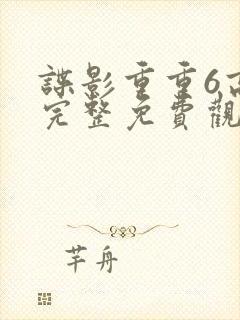 諜影重重6高
完整免費觀
芊舟